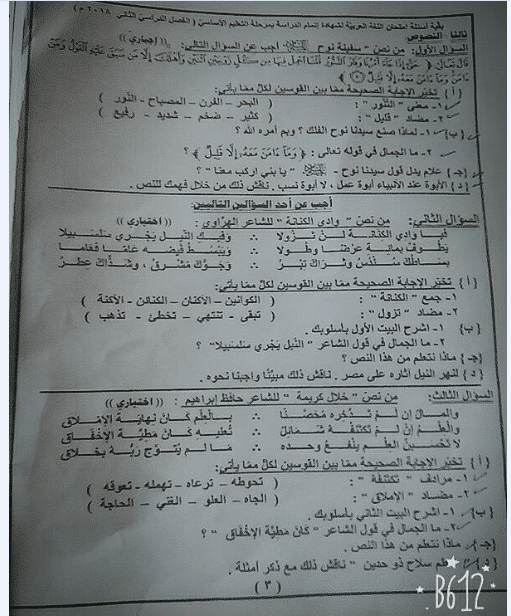 بقية أسئلة امتحان اللغة العربية لشهادة إتمام الدراسة بمرحلة التعليم الأساسي ( الفصل الدراسي الثاني ٢٠١٨ م )
ثالثا النصوص
السؤال الأول: من نص " سفينة نوح أجب عن السؤال التالي: (( إجباري ))
قال تعالى ﴿ حَتَّىٰ إِذَا جَاءَ أَمْرُنَا وَفَارَ التَّنُّورُ قُلْنَا احْمِلْ فِيهَا مِن كُلٍّ زَوْجَيْنِ اثْنَيْنِ وَأَهْلَكَ إِلَّا مَن سَبَقَ عَلَيْهِ الْقَوْلُ وَمَنْ
آمَنَ وَمَا آمَنَ مَعَهُ إِلَّا قَلِيلٌ
{ أ } تخيّر الإجابة الصحيحة ممّا بين القوسين لكلّ ممّا يأتي:
١- معنى " التنّور " : ( البحر – الفرن – المصباح – النّور )
٢- مضاد " قليل " : ( كثير – ضخم – شديد – رفيع )
{ ب } ١- لماذا صنع سيدنا نوح الفلك ؟ وبم أمره الله ؟
٢- ما الجمال في قوله تعالى : ﴿ وَمَا آمَنَ مَعَهُ إِلَّا قَلِيلٌ ﴾ ؟
{ جـ } علام يدل قول سيدنا نوح - " يا بني اركب معنا " ؟
{ د } الأبوة عند الأنبياء أبوة عمل ، لا أبوة نسب . ناقش ذلك من خلال فهمك للنص .
أجب عن أحد السؤالين التاليين:
السؤال الثاني: من نص " وادي الكنانة " للشاعر الهراوي : (( اختياري ))
فيا وادي الكنانة لن تزولا ∴ وفيك النيل يجري سلسبيلا
يطوف بمائه عرضا وطولا ∴ ويبسط فيضه عاما فعاما
بساطك سندس وثراك تبر ∴ وجوّك مشرق ، وشذاك عطر
{ أ } تخيّر الإجابة الصحيحة ممّا بين القوسين لكلّ ممّا يأتي:
١- جمع " الكنانة " : ( الكوانين – الأكنان – الكنائن – الأكنة )
٢- مضاد " تزول " : ( تبقى – تنتهي – تخطئ – تذهب )
{ ب } ١- اشرح البيت الأول بأسلوبك .
٢- ما الجمال في قول الشاعر " النّيل يَجْري سَلْسَبيلا" ؟
{ جـ } ماذا نتعلم من هذا النص ؟
{ د } لنهر النيل آثاره على مصر . ناقش ذلك مبيّنًا واجبنا نحوه .
السؤال الثالث: من نص " خلال كريمة " للشاعر حافظ إبراهيم : (( اختياري ))
والمال إن لم تدّخره محصّنًا ∴ بالعلم كان نهاية الإملاق
والعلم إن لم تكتنفه شمائل ∴ تعليه كان مطيّة الإخفاق
لا تحسبنّ العلم ينفع وحده ∴ ما لم يتوّج ربّه بخلاق
{ أ } تخيّر الإجابة الصحيحة ممّا بين القوسين لكلّ ممّا يأتي:
١- مرادف " تكتنفه " : ( تحوطه – ترعاه – تهمله – تعوقه )
٢- مضاد " الإملاق " : ( الجاه – العلو – الغنى – الحاجة )
{ ب } ١- اشرح البيت الثاني بأسلوبك .
٢- ما الجمال في قول الشاعر " كَانَ مَطِيَّةَ الإِخْفَاقِ " ؟
{ جـ } ماذا نتعلم من هذا النص .
سلاح ذو حدين " ناقش ذلك مع ذكر أمثلة .
( ٣ )
B612